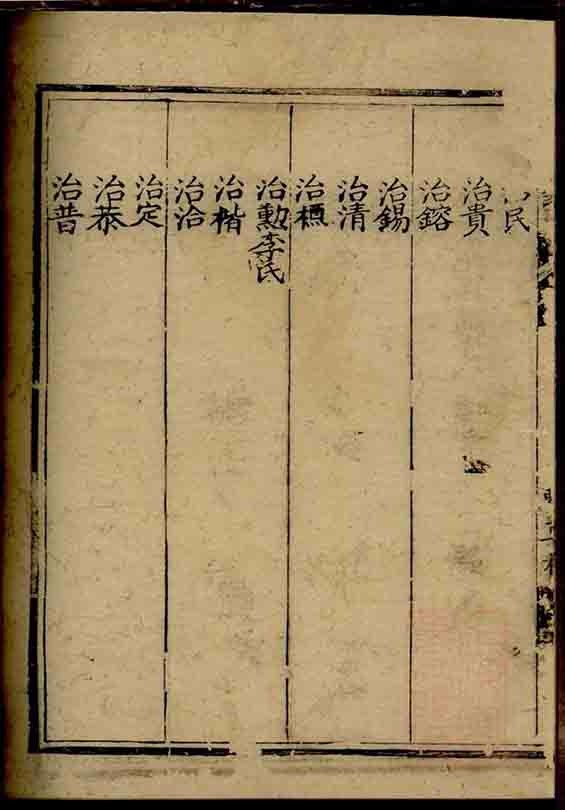 民
治貴
治鎔
治錫
治清
治標
治勲李氏
治楷
治洽
治定
治恭
治普